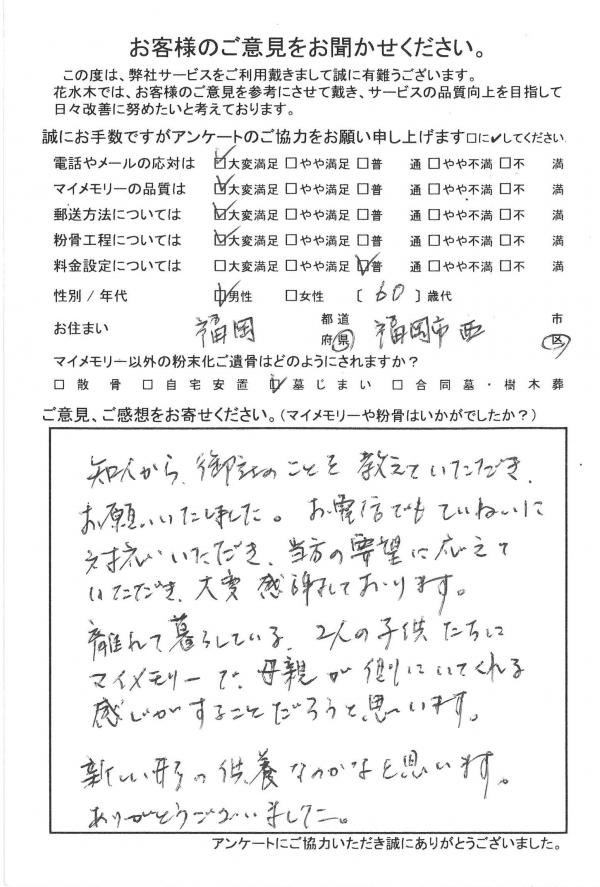 お客様のご意見をお聞かせください。
この度は、弊社サービスをご利用戴きまして誠に有難うございます。
花水木では、お客様のご意見を参考にさせて戴き、サービスの品質向上を目指して
日々改善に努めたいと考えております。
誠にお手数ですがアンケートのご協力をお願い申し上げます□に✓してください
電話やメールの応対は ☑大変満足 □やや満足 □普 通 □やや不満 □不 満
マイメモリーの品質は ☑大変満足 □やや満足 □普 通 □やや不満 □不 満
郵送方法については ☑大変満足 □やや満足 □普 通 □やや不満 □不 満
粉骨工程については ☑大変満足 □やや満足 □普 通 □やや不満 □不 満
料金設定については □大変満足 □やや満足 ☑普 通 □やや不満 □不 満
性別 / 年代 ☑男性 □女性 〔 60 〕歳代
お住まい 福岡 都道府県 福岡市西 市区
マイメモリー以外の粉末化ご遺骨はどのようにされますか?
□散 骨 □自宅安置 ☑墓じまい □合同墓・樹木葬
ご意見、ご感想をお寄せください。(マイメモリーや粉骨はいかがでしたか?)
知人から、御社のことを教えていただき、
お願いいたしました。お電話でもていねいに
対応いただき、当方の要望に応えて
いただき、大変感謝しております。
離れて暮らしている、2人の子供たちに
マイメモリーで、母親が側にいてくれる
感じがすることだろうと思います。
新しい形の供養なのかなと思います。
ありがとうございました。
アンケートにご協力いただき誠にありがとうございました。